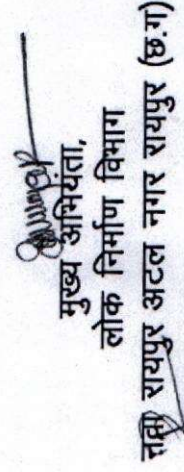 मुख्य अभियंता,
लोक निर्माण विभाग
नवा रायपुर अटल नगर रायपुर (छ.ग)